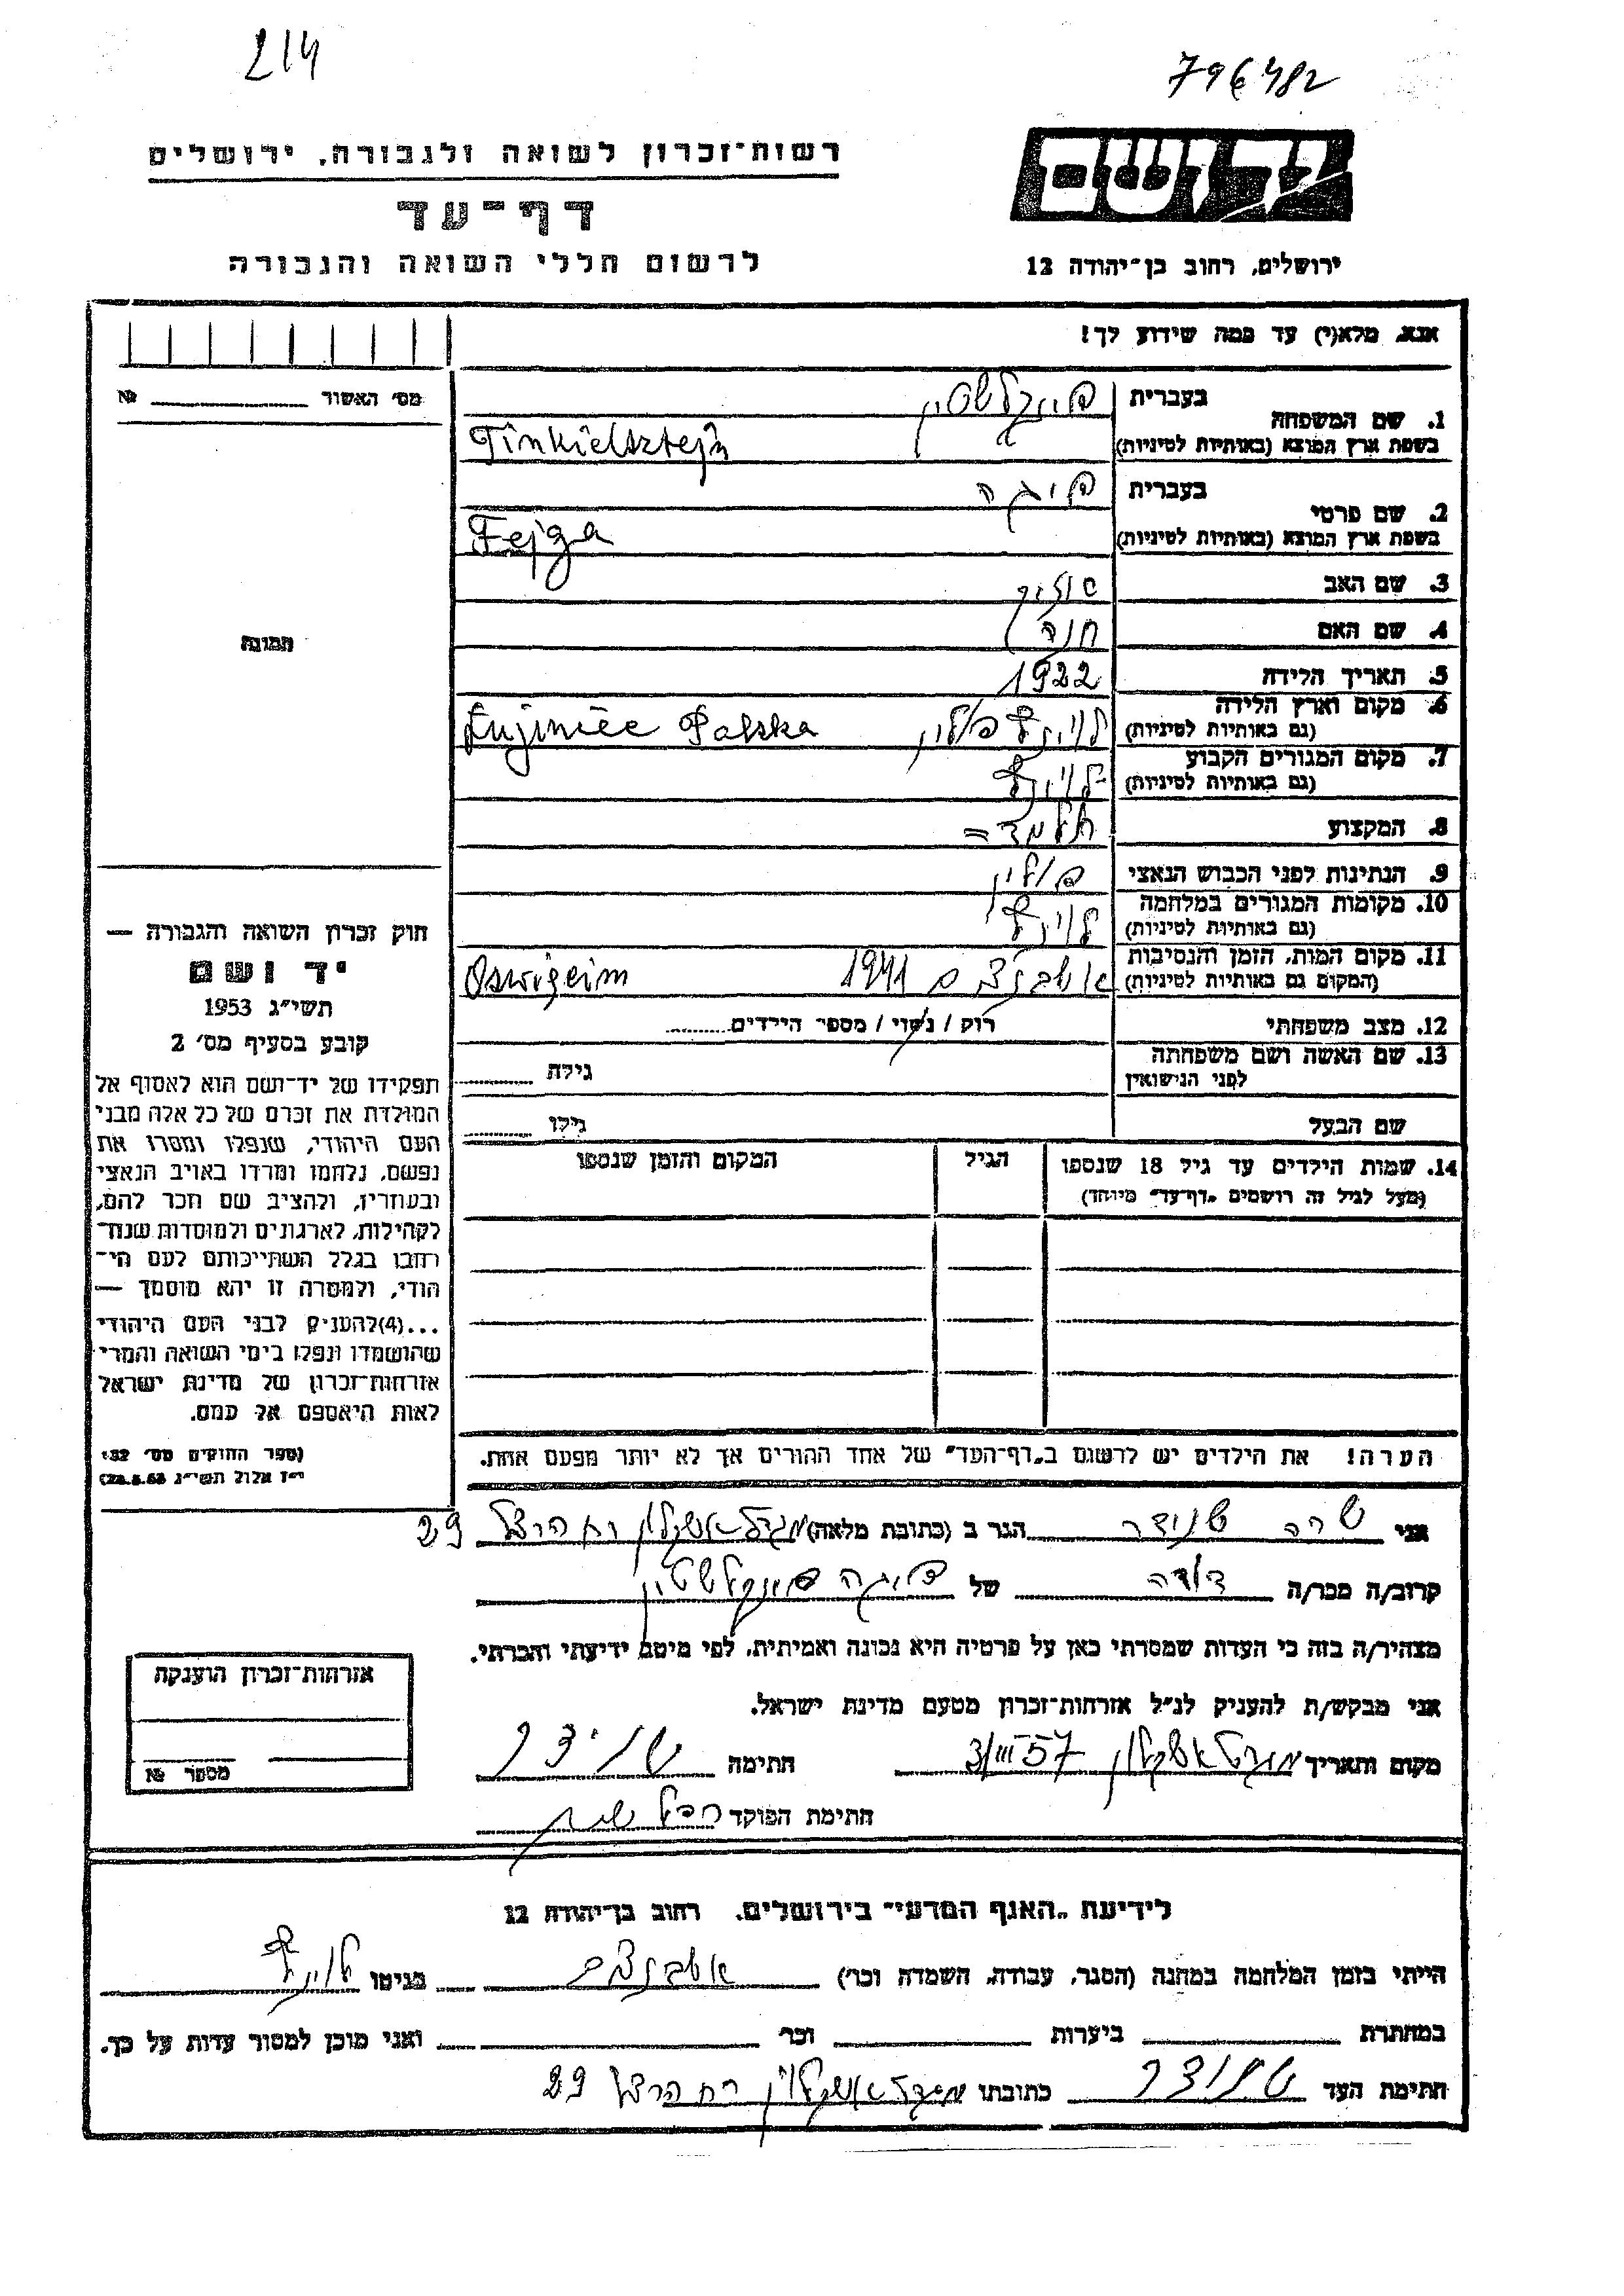 214
796482
יד ושם
רשות־זכרון לשואה ולגבורה, ירושלים
דף־עד
לרשום חללי השואה והגבורה
ירושלים, רחוב בן־יהודה 12
אנא, מלא(י) עד כמה שידוע לך!
מס׳ האשור № 
1. שם המשפחה
בעברית פינקלשטיין
בשפת ארץ המוצא (באותיות לטיניות) Finkielsztejn
2. שם פרטי
בעברית פייגה
בשפת ארץ המוצא (באותיות לטיניות) Fejga
3. שם האב
4. שם האם חנה
5. תאריך הלידה 1922
6. מקום וארץ הלידה
(גם באותיות לטיניות) פולין Polska
7. מקום המגורים הקבוע
(גם באותיות לטיניות)
8. המקצוע
9. הנתינות לפני הכבוש הנאצי פולין
10. מקומות המגורים במלחמה
(גם באותיות לטיניות)
11. מקום המות, הזמן והנסיבות
(המקום גם באותיות לטיניות) 1941
12. מצב משפחתי רוק / נשוי / מספר הילדים
13. שם האשה ושם משפחתה
לפני הנישואין
גילה
שם הבעל גילו
14. שמות הילדים עד גיל 18 שנספו
(מעל לגיל זה רושמים „דף־עד" מיוחד)
הגיל
המקום והזמן שנספו
הערה! את הילדים יש לרשום ב„דף־העד" של אחד ההורים אך לא יותר מפעם אחת.
תמונה
חוק זכרון השואה והגבורה —
יד ושם
תשי״ג 1953
קובע בסעיף מס׳ 2
תפקידו של יד־ושם הוא לאסוף אל
המולדת את זכרם של כל אלה מבני
העם היהודי, שנפלו ומסרו את
נפשם, נלחמו ומרדו באויב הנאצי
ובעוזריו, ולהציב שם וזכר להם,
לקהילות, לארגונים ולמוסדות שנח־
רבו בגלל השתייכותם לעם הי־
הודי, ולמטרה זו יהא מוסמך —
...(4)להעניק לבני העם היהודי
שהושמדו ונפלו בימי השואה והמרי
אזרחות־זכרון של מדינת ישראל
לאות היאספם אל עמם.
(ספר החוקים מס׳ 132,
י״ז אלול תשי״ג 28.8.53)
אני שרה שנידר הגר ב (כתובת מלאה) מגדל אשקלון רח הרצל 29
קרוב/ה מכר/ה דודה של פייגה פינקלשטיין
מצהיר/ה בזה כי העדות שמסרתי כאן על פרטיה היא נכונה ואמיתית, לפי מיטב ידיעתי והכרתי.
אני מבקש/ת להעניק לנ״ל אזרחות־זכרון מטעם מדינת ישראל.
מקום ותאריך מגדל אשקלון 3/III 57 חתימה שנידר
חתימת הפוקד
אזרחות־זכרון הוענקה
מספר №
לידיעת „האגף המדעי" בירושלים, רחוב בן־יהודה 12
הייתי בזמן המלחמה במחנה (הסגר, עבודה, השמדה וכו׳) בגיטו
במחתרת ביערות וכו׳ ואני מוכן למסור עדות על כך.
חתימת העד שנידר כתובתו מגדל אשקלון רח הרצל 29